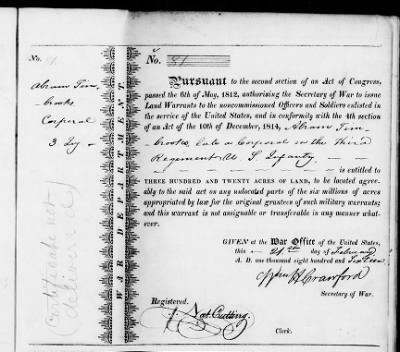 No. 81.
Abram Tim-
brooks
Corporal
3 Iy -
Certificate not
delivered
WAR DEPARTMENT.
No. 81
Pursuant to the second section of an Act of Congress,
passed the 6th of May, 1812, authorising the Secretary of War to issue
Land Warrants to the noncommissioned Officers and Soldiers enlisted in
the service of the United States, and in conformity with the 4th section
of an Act of the 10th of December, 1814, Abram Tim -
brooks, late a Corporal in the Third
Regiment U S Infantry. —
is entitled to
THREE HUNDRED AND TWENTY ACRES OF LAND, to be located agreeably
to the said act on any unlocated parts of the six millions of acres
appropriated by law for the original grantees of such military warrants;
and this warrant is not assignable or transferable in any manner what-
ever.
GIVEN at the War Office of the United States,
this day of February
A. D. one thousand eight hundred and Sixteen
Wm H Crawford
Secretary of War.
Registered.
Nat. Cutting.
Clerk.